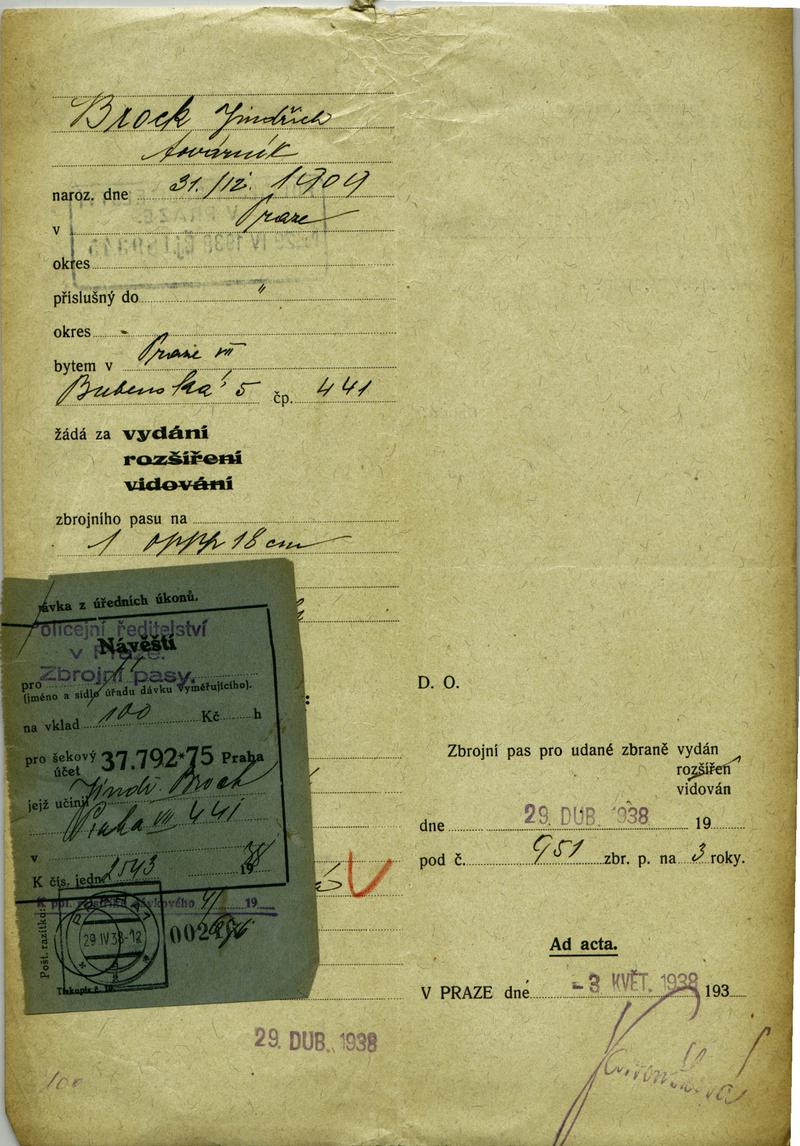 Brock Jindřich
továrník
naroz. dne 31./12. 1909
v Praze
okres
příslušný do "
okres
bytem v Praze VII
Bubenská 5 čp. 441
žádá za vydání
rozšíření
vidování
zbrojního pasu na
1 18 cm
ávka z úředních úkonů.
Policejní ředitelství
v Praze.
Návěští
Zbrojní pasy.
pro
(jméno a sídlo úřadu dávku vyměřujícího).
na vklad 100 Kč h
pro šekový účet 37.792*75 Praha
jejž učinil Jindř. Brock
Praha VII 441
v 1938
K čís. jedn. 2543
19
Pošt. razítko:
29 IV 38-12
Tiskopis č.
29. DUB. 1938
100
D. O.
Zbrojní pas pro udané zbraně vydán
rozšířen
vidován
dne 29. DUB. 1938 19
pod č. 951 zbr. p. na 3 roky.
Ad acta.
V PRAZE dne - 3 KVĚT. 1938 193